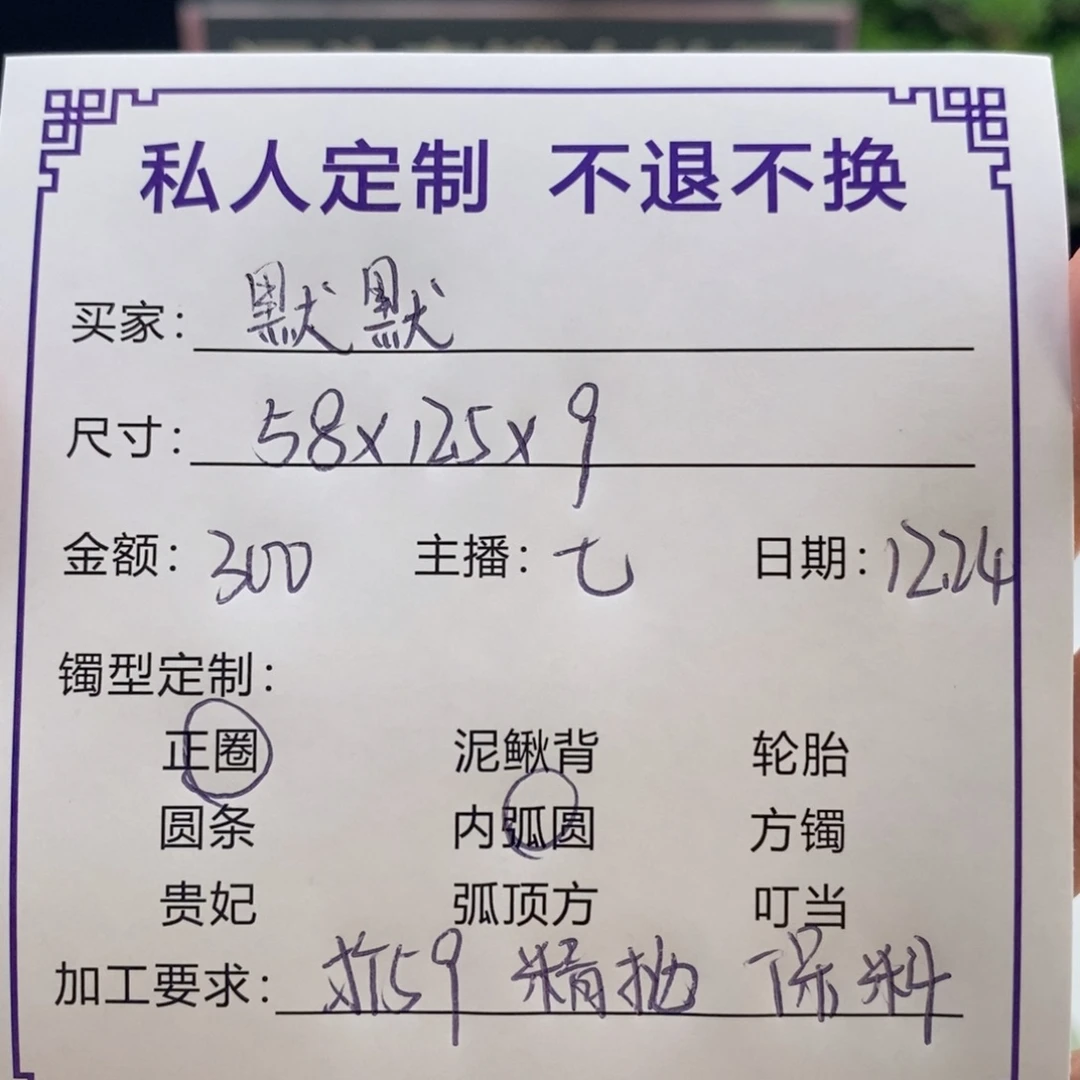 私人定制 不退不换
买家：默默
尺寸：58x12.5x9
金额：300 主播：七 日期：12.24
镯型定制：
正圈 泥鳅背 轮胎
圆条 内弧圆 方镯
贵妃 弧顶方 叮当
加工要求：59 精抛 保料